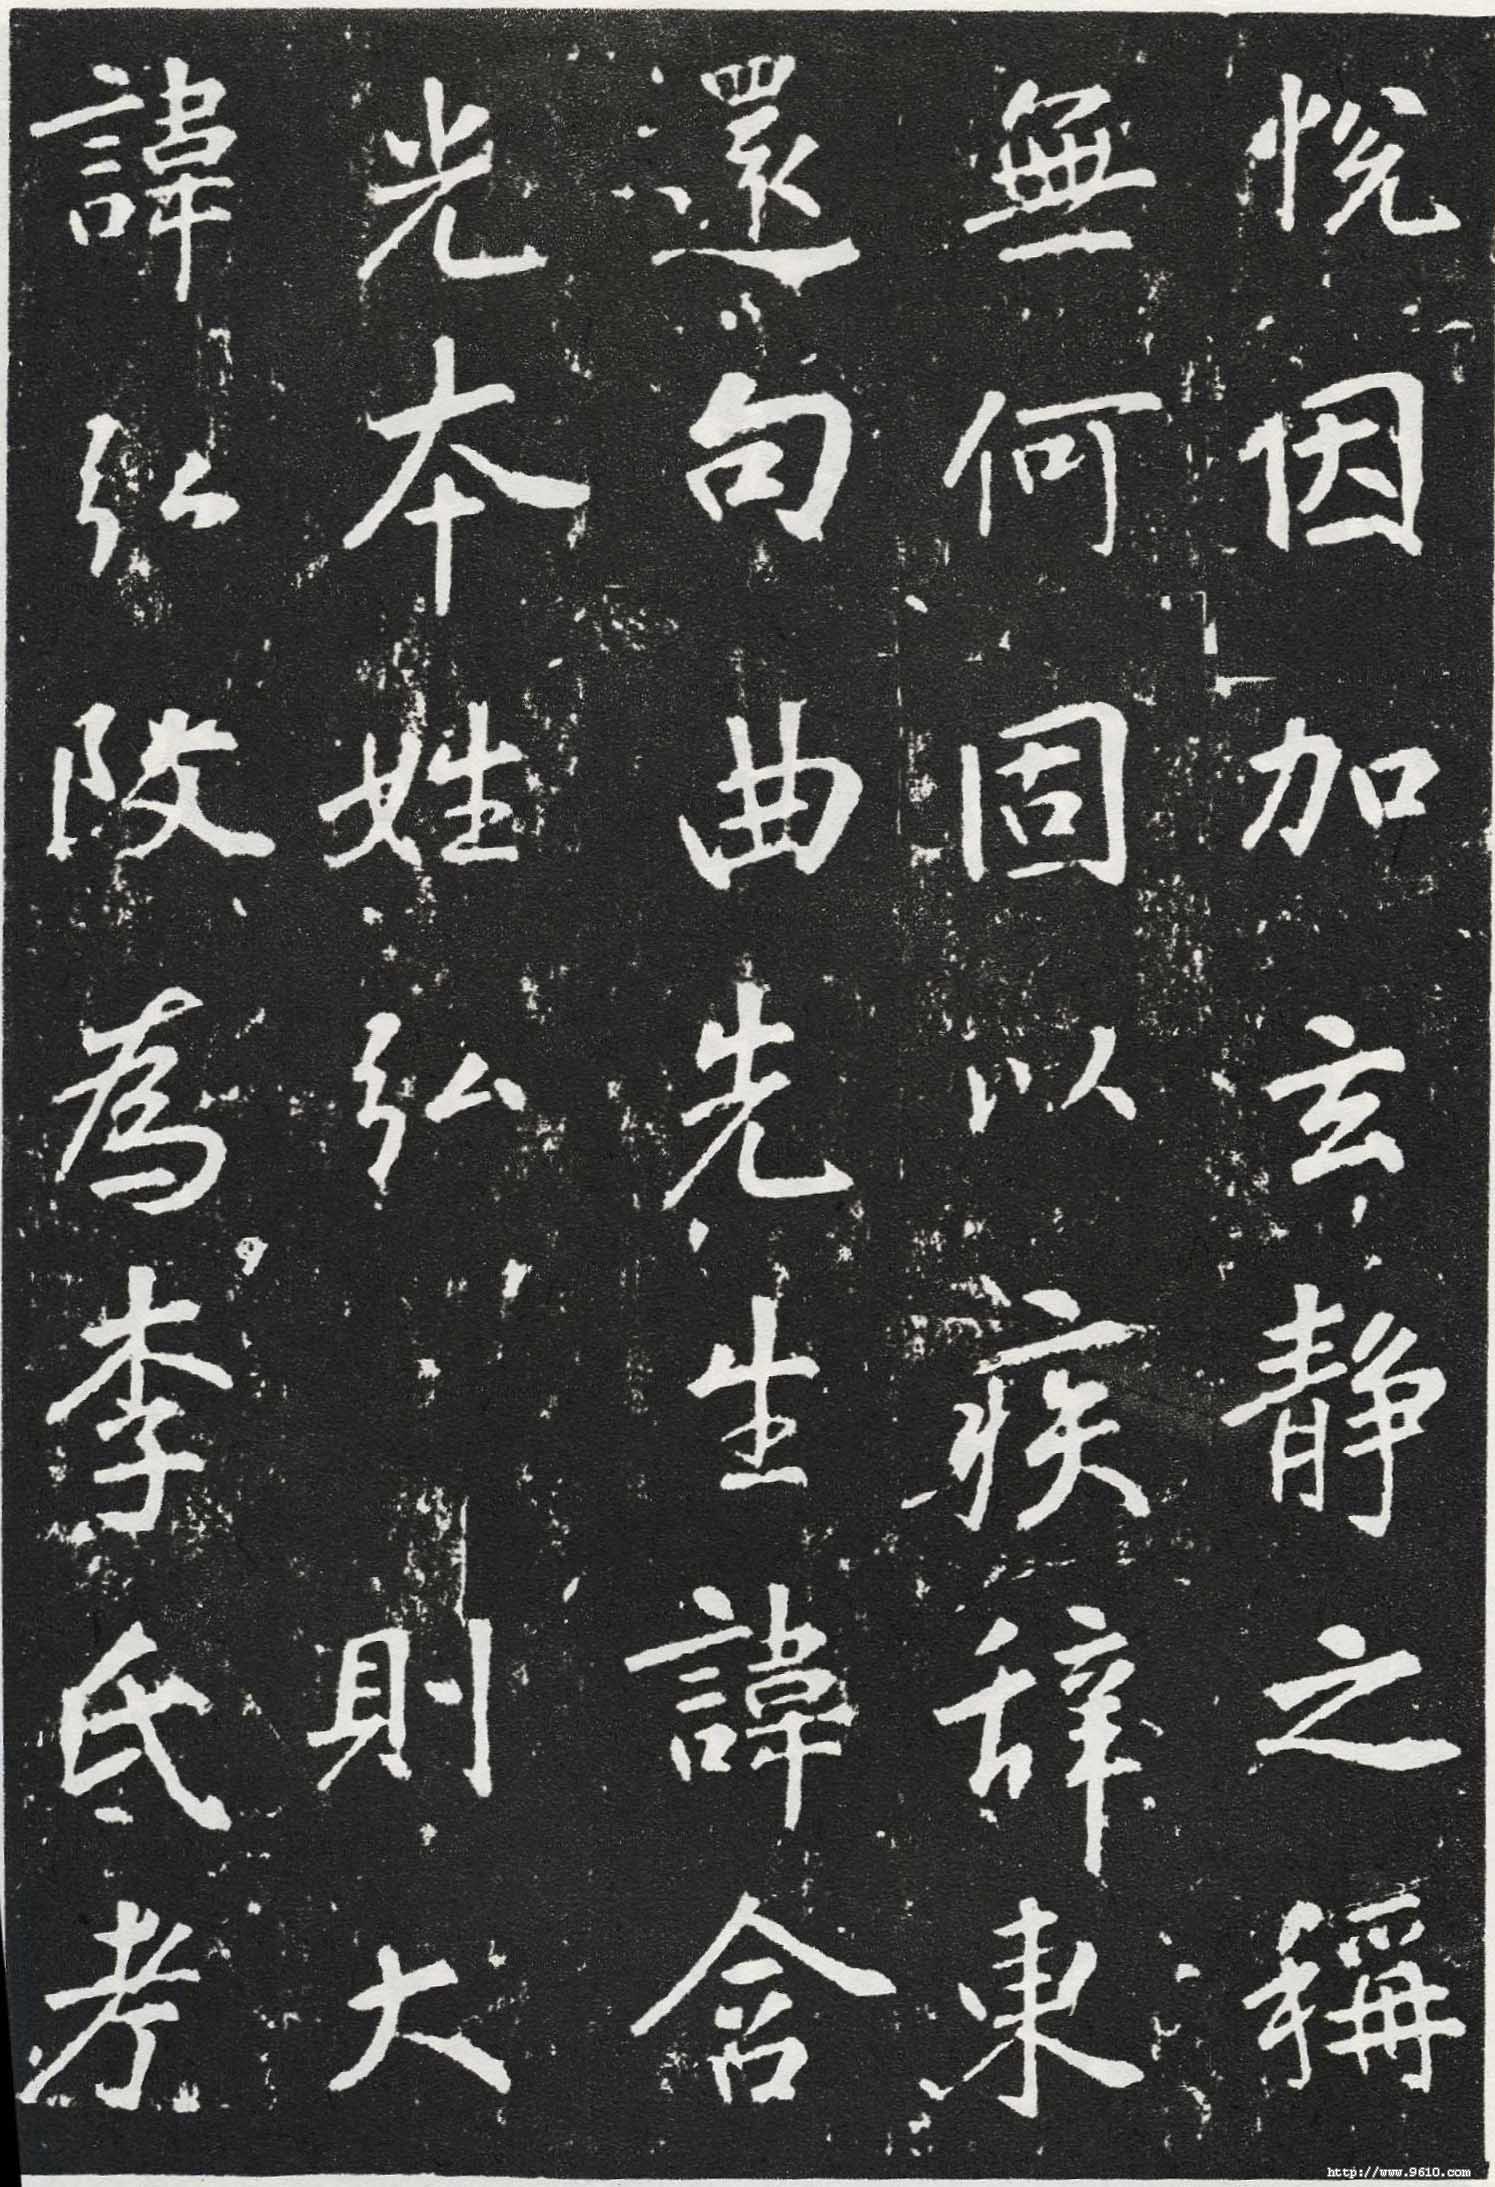 悅因加玄靜之稱
無何固以疾辭東
還句曲先生諱含
光本姓弘則大
諱弘改為李氏考
http://www.9610.com